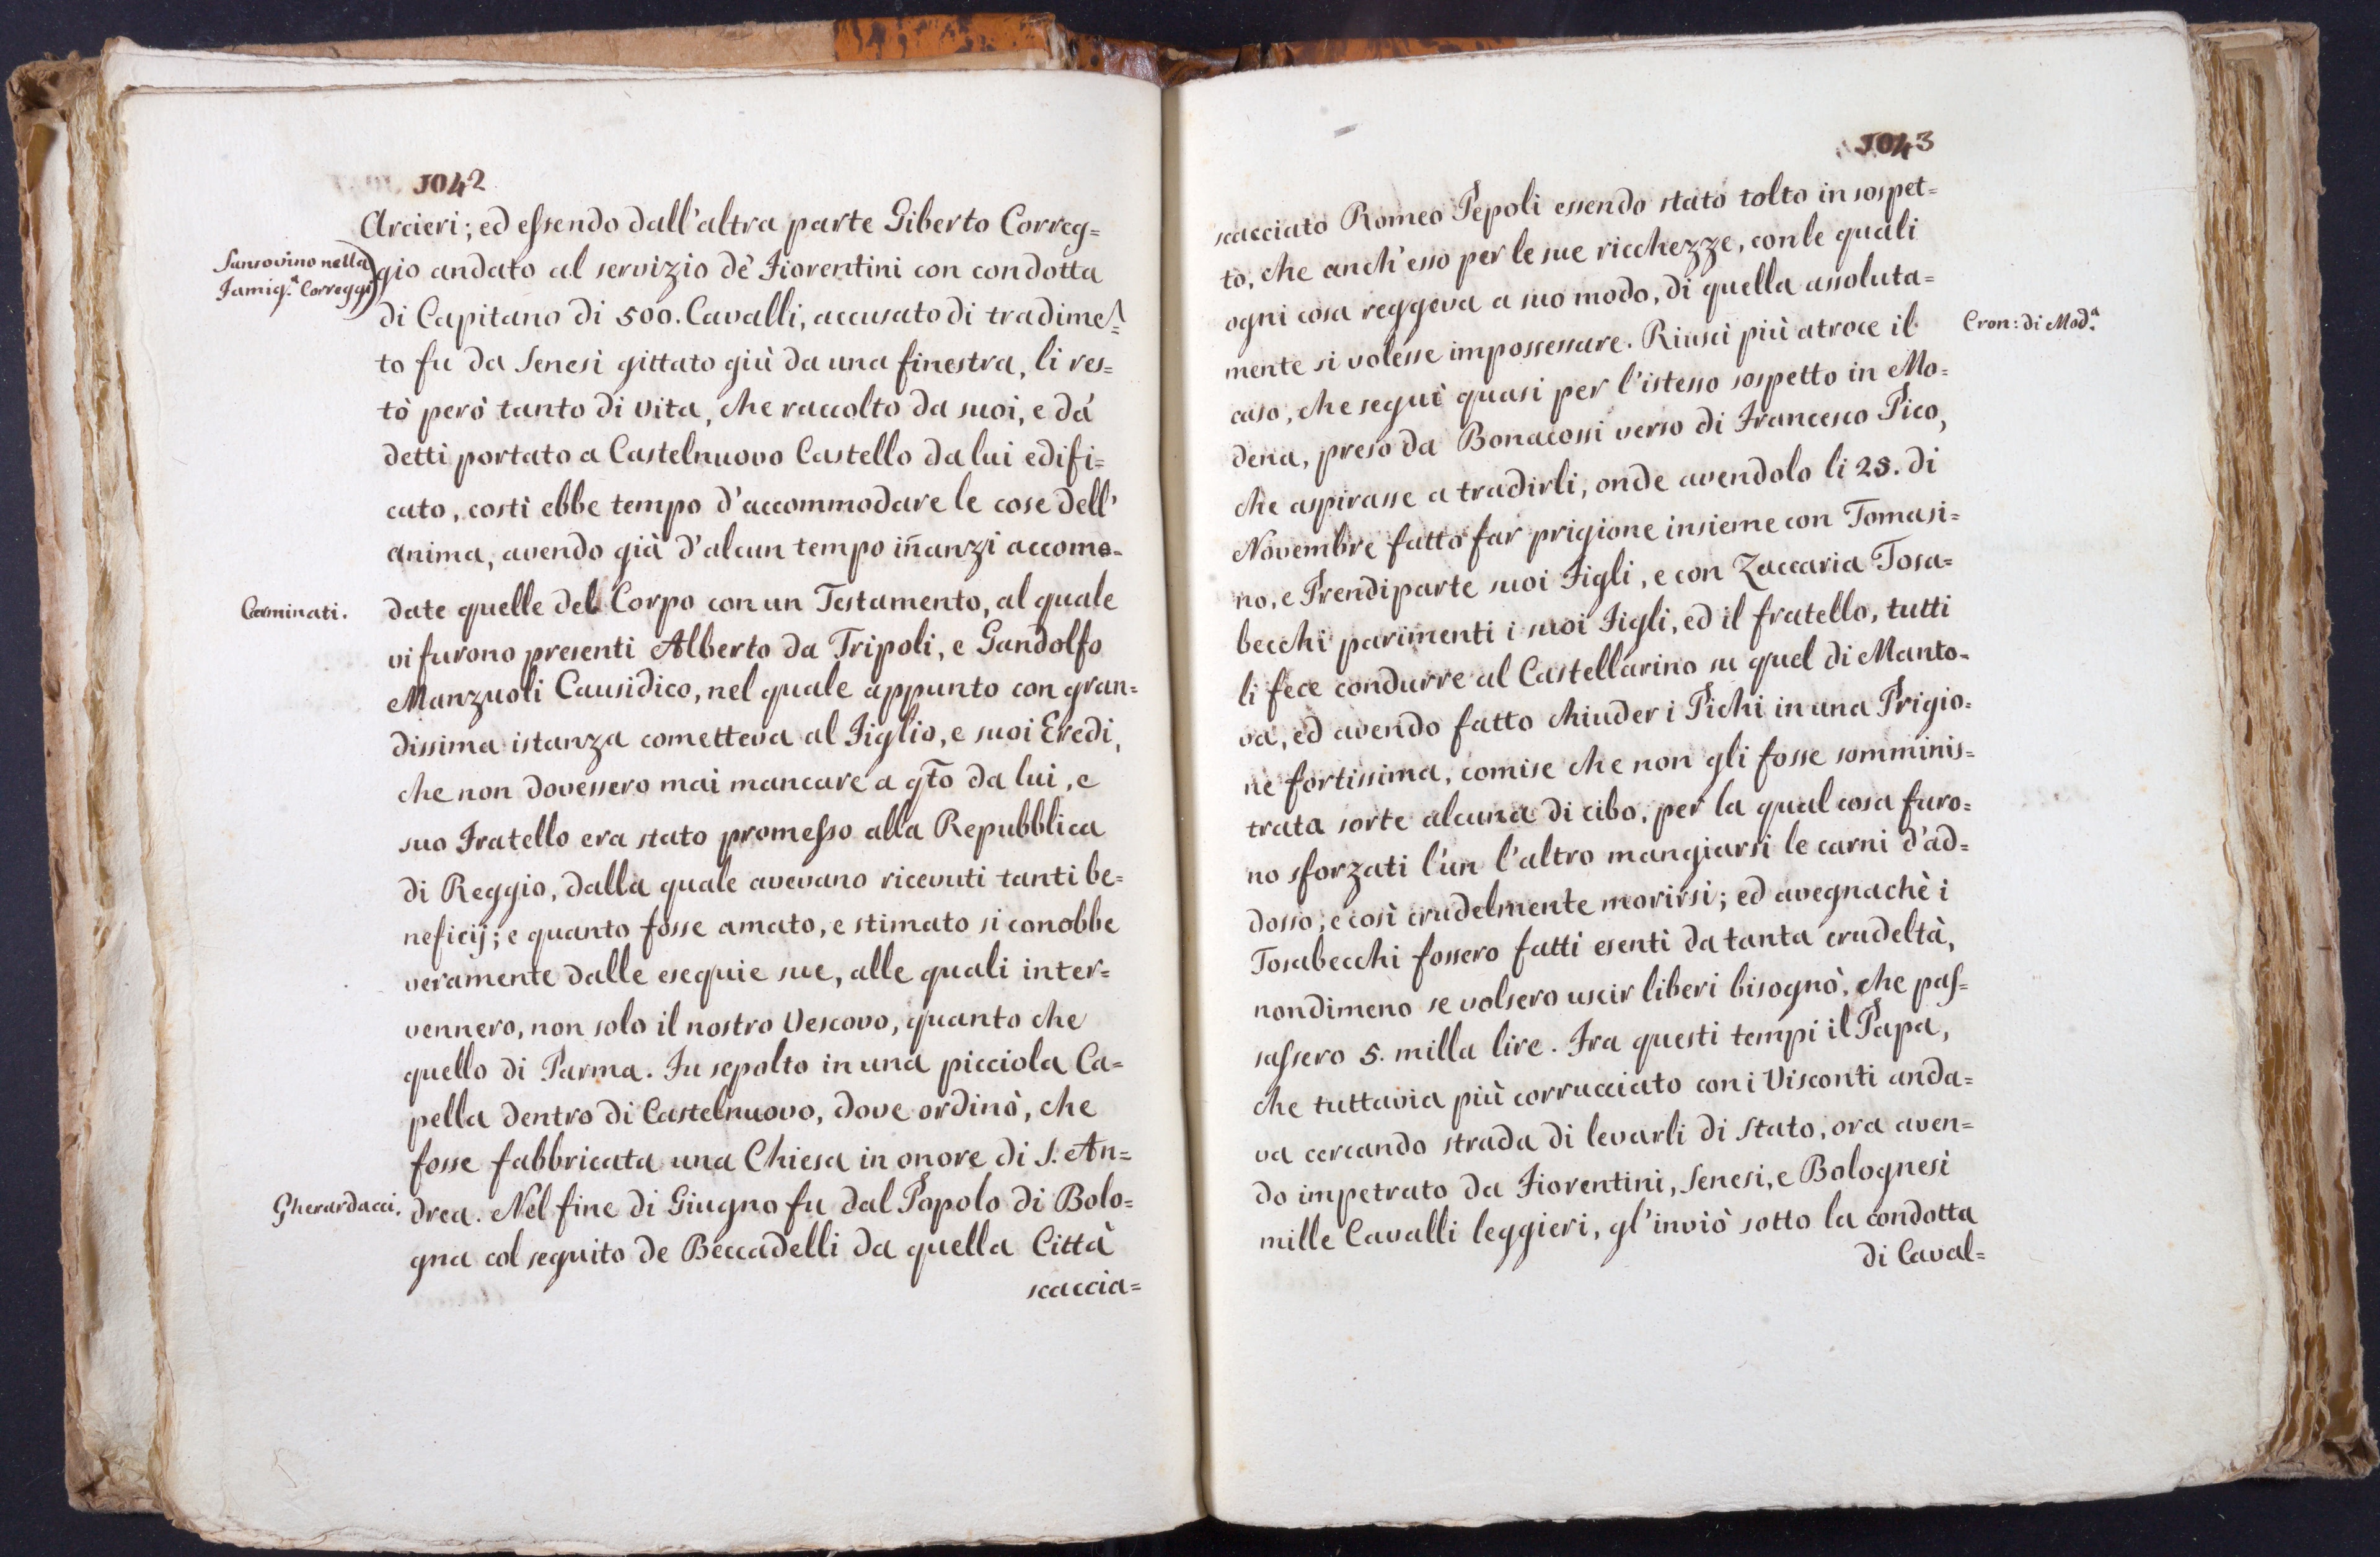 1042
Arcieri; ed essendo dall'altra parte Giberto Correg=
Sansovino nella
Famig.ª Correggi
gio andato al servizio de' Fiorentini con condotta
di Capitano di 500. Cavalli, accusato di tradime͂=
to fu da Senesi gittato giù da una finestra, li res=
tò però tanto di vita, che raccolto da suoi, e da
detti portato a Castelnuovo Castello da lui edifi=
cato, costi ebbe tempo d'accommodare le cose dell'
anima, avendo già d'alcun tempo iñanzi accomo=
Carminati.
date quelle del Corpo con un Testamento, al quale
vi furono presenti Alberto da Tripoli, e Gandolfo
Manzuoli Causidico, nel quale appunto con gran=
dissima istanza cometteva al Figlio, e suoi Eredi,
che non dovessero mai mancare a qt̃o da lui, e
suo Fratello era stato promesso alla Repubblica
di Reggio, dalla quale avevano ricevuti tanti be=
neficij; e quanto fosse amato, e stimato si conobbe
veramente dalle esequie sue, alle quali inter=
vennero, non solo il nostro Vescovo, quanto che
quello di Parma. Fu sepolto in una picciola Ca=
pella dentro di Castelnuovo, dove ordinò, che
fosse fabbricata una Chiesa in onore di S. An=
Gherardacci.
drea. Nel fine di Giugno fu dal Popolo di Bolo=
gna col seguito de Beccadelli da quella Città
scaccia=
1043
scacciato Romeo Pepoli essendo stato tolto in sospet=
to, che anch'esso per le sue ricchezze, con le quali
ogni cosa reggeva a suo modo, di quella assoluta=
Cron: di Mod.ª
mente si volesse impossessare. Riuscì più atroce il
caso, che seguì quasi per l'istesso sospetto in Mo=
dena, preso da Bonacossi verso di Francesco Pico,
che aspirasse a tradirli, onde avendolo li 28. di
Novembre fatto far prigione insieme con Tomasi=
no, e Prendiparte suoi Figli, e con Zaccaria Tosa=
becchi parimenti i suoi Figli, ed il fratello, tutti
li fece condurre al Castellarino su quel di Manto=
va, ed avendo fatto chiuder i Pichi in una Prigio=
ne fortissima, comise che non gli fosse somminis=
trata sorte alcuna di cibo, per la qual cosa furo=
no sforzati l'un l'altro mangiarsi le carni d'ad=
dosso, e così crudelmente morirsi; ed avegnachè i
Tosabecchi fossero fatti esenti da tanta crudeltà,
nondimeno se volsero uscir liberi bisognò, che pas=
sassero 5. milla lire. Fra questi tempi il Papa,
che tuttavia più corrucciato con i Visconti anda=
va cercando strada di levarli di Stato, ora aven=
do impetrato da Fiorentini, Senesi, e Bolognesi
mille Cavalli leggieri, gl'inviò sotto la condotta
di Caval=